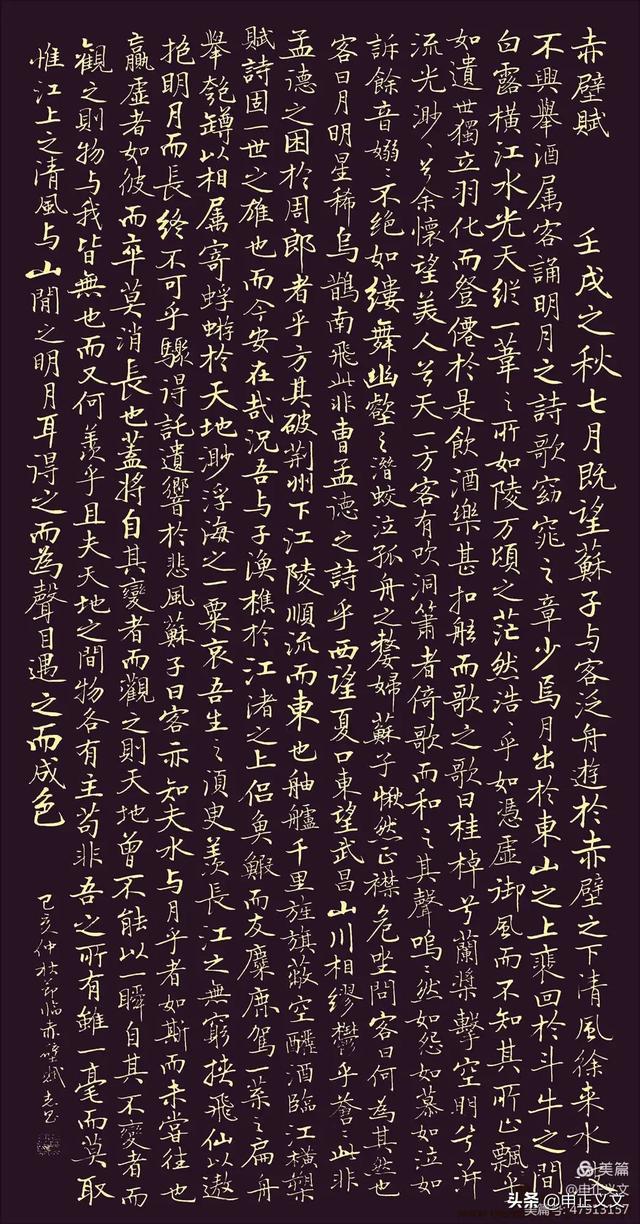 赤壁賦 壬戌之秋七月既望蘇子与客泛舟遊於赤壁之下清風徐来水
不興舉酒属客誦明月之詩歌窈窕之章少焉月出於東山之上裴回於斗牛之間
白露橫江水光天縱一葦之所如陵万頃之茫然浩〻乎如憑虛御風而不知其所止飄乎
如遺世獨立羽化而登僊於是飲酒樂甚扣舷而歌之歌曰桂棹兮蘭槳擊空明兮泝
流光渺〻兮余懷望美人兮天一方客有吹洞簫者倚歌而和之其聲嗚〻然如怨如慕如泣如
訴餘音嫋〻不絕如縷舞幽壑之潛蛟泣孤舟之嫠婦蘇子愀然正襟危坐問客曰何為其然也
客曰月明星稀烏鵲南飛此非曹孟德之詩乎西望夏口東望武昌山川相繆鬱乎蒼〻此非
孟德之困於周郎者乎方其破荊州下江陵順流而東也舳艫千里旌旗蔽空釃酒臨江橫槊
賦詩固一世之雄也而今安在哉況吾与子漁樵於江渚之上侶魚鰕而友麋鹿駕一葉之扁舟
舉匏罇以相属寄蜉蝣於天地渺浮海之一粟哀吾生之須臾羨長江之無窮挾飛仙以遨
抱明月而長終不可乎驟得託遺響於悲風蘇子曰客亦知夫水与月乎者如斯而未嘗往也
贏虛者如彼而卒莫消長也蓋將自其變者而觀之則天地曾不能以一瞬自其不變者而
觀之則物与我皆無也而又何羨乎且夫天地之間物各有主苟非吾之所有雖一毫而莫取
惟江上之清風与山間之明月耳得之而為聲目遇之而成色
己亥仲秋節臨赤壁賦
美篇
美篇号: 47913157
头条 @申正义文